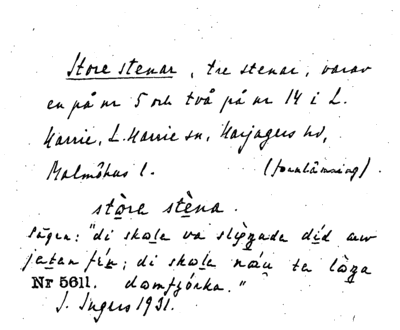 Store stenar, tre stenar, varav
en på nr 5 och två på nr 14 i L.
Harrie, L. Harrie sn, Harjagers hd,
Malmöhus l. (fornlämning).
stòra stèna.
Sägen: "di skola va slìŋada díd aw
jatan frå; di skola ta
Nr 5611.
I. Ingers 1931.